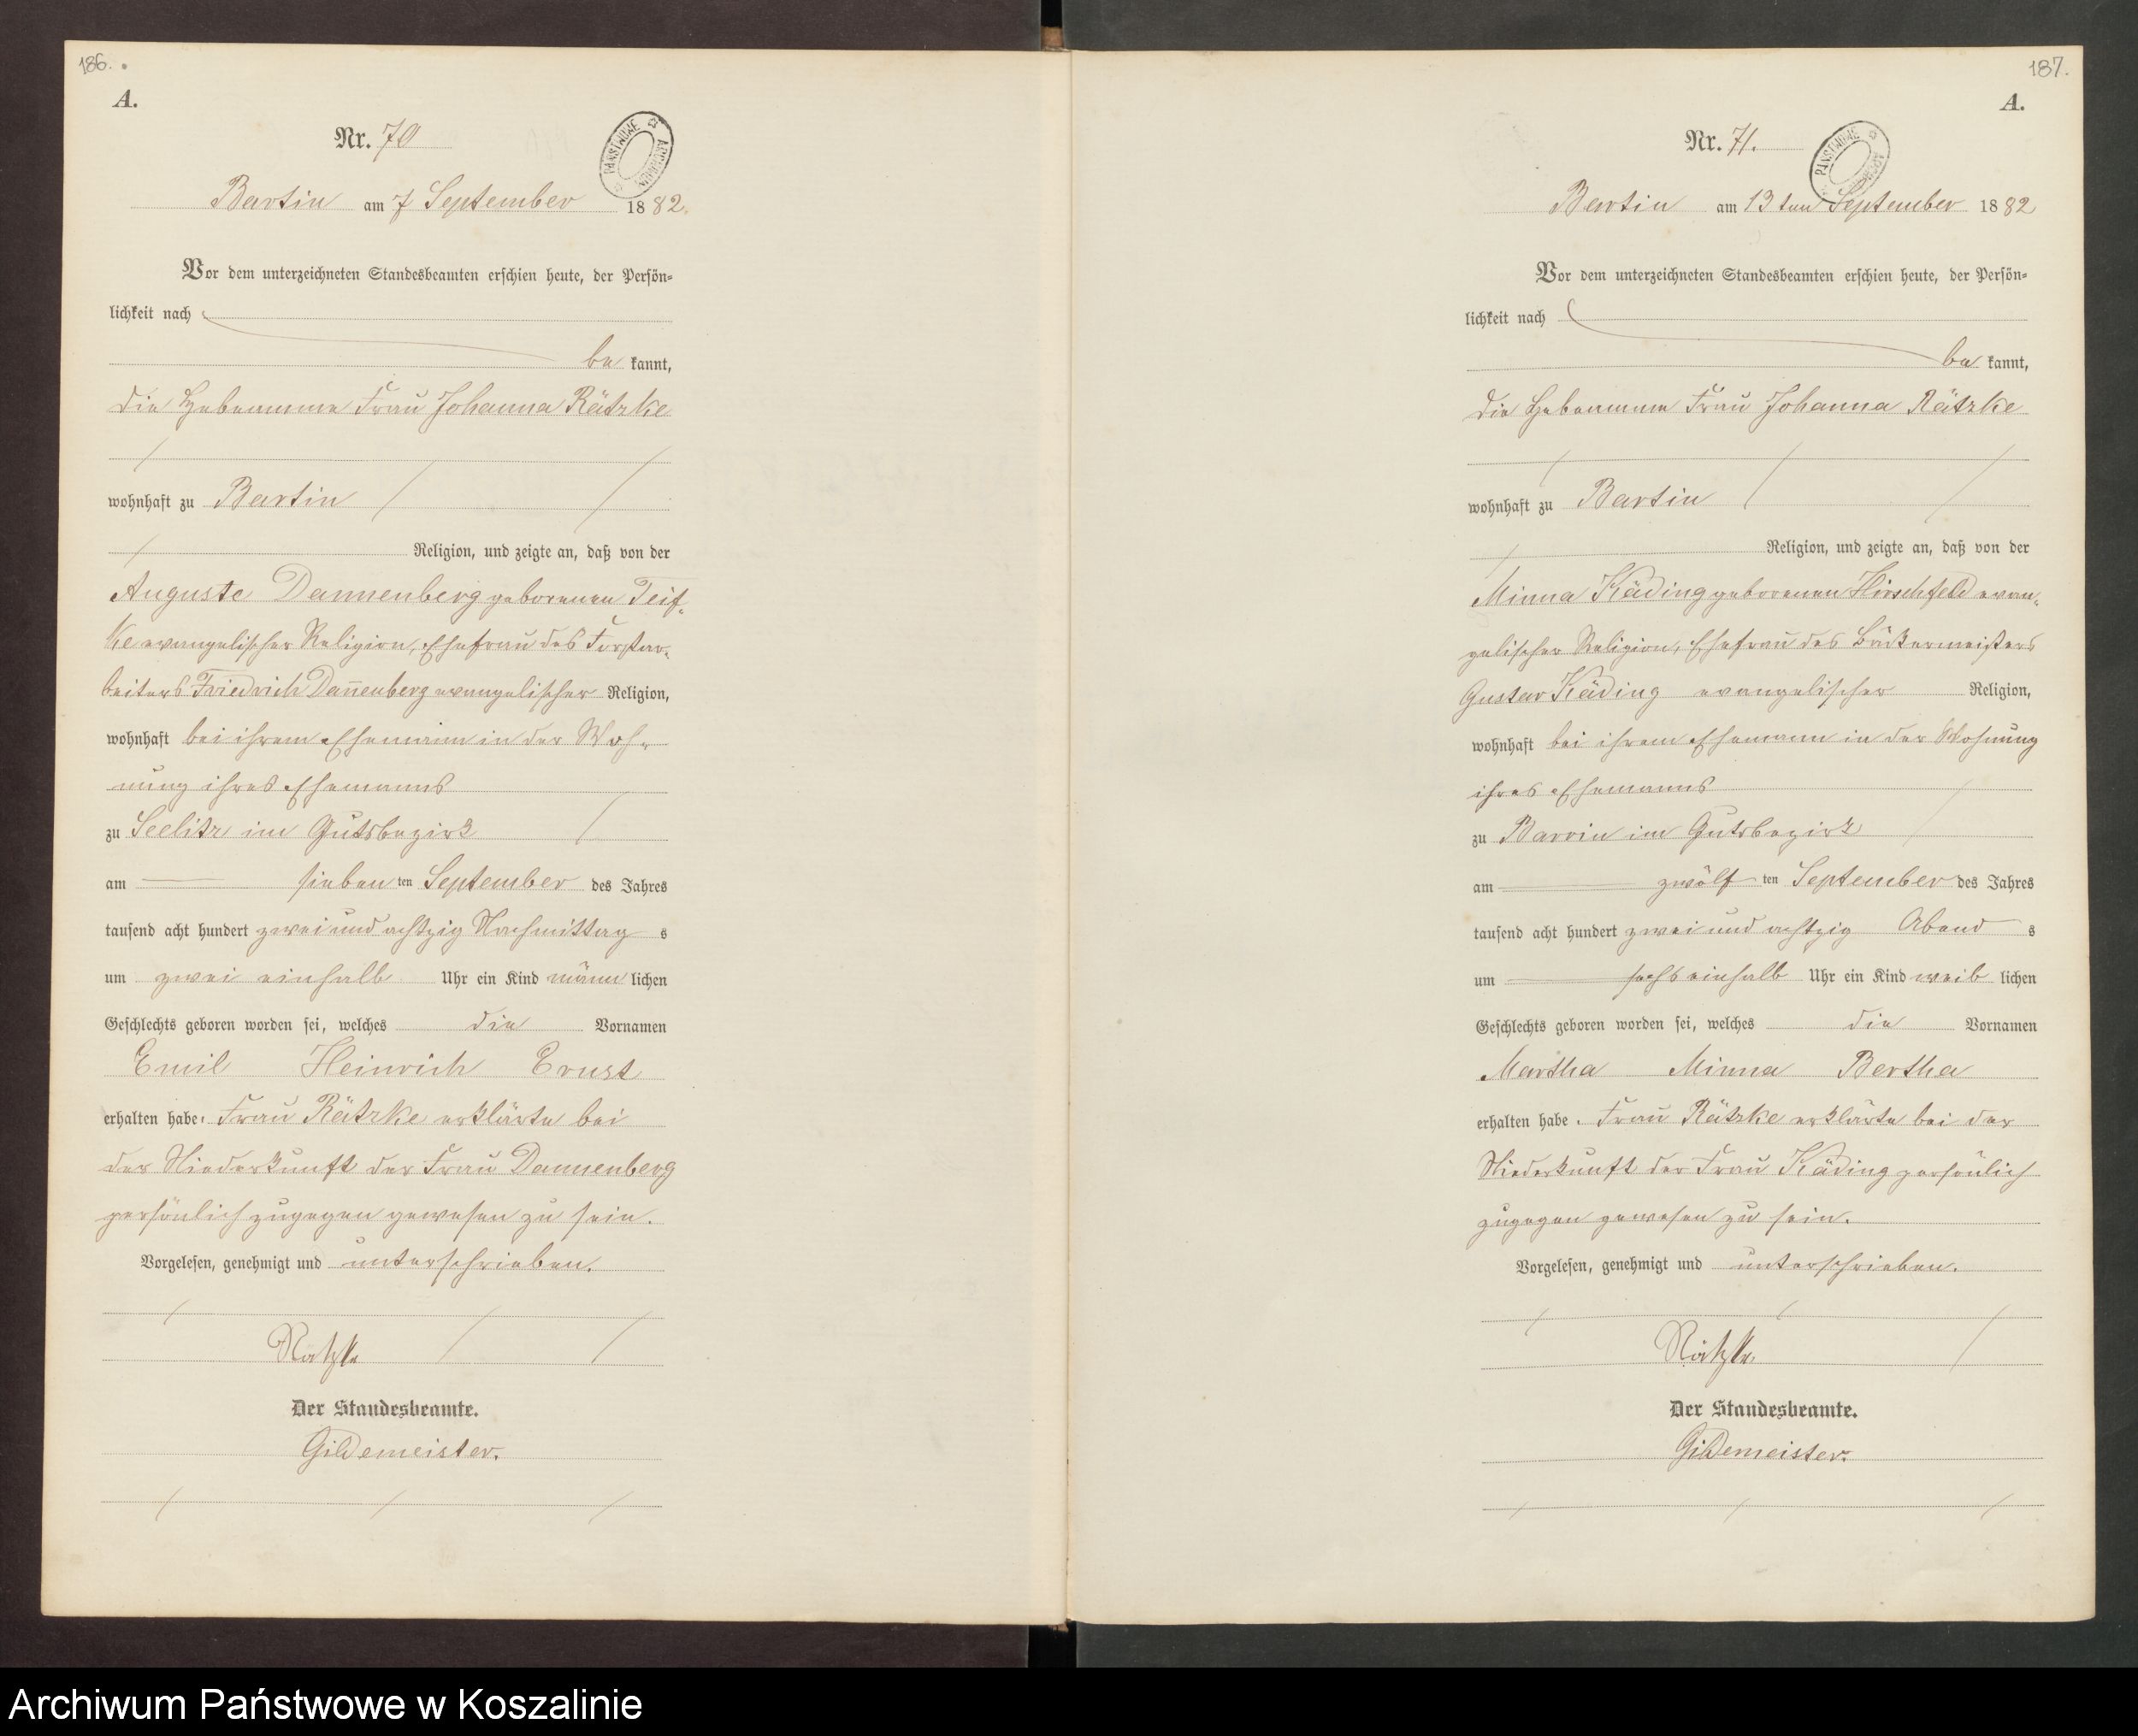 186.
A.
Nr. 70
PAŃSTWOWE ARCHIWUM
Bartin am 7 September 1882.
Vor dem unterzeichneten Standesbeamten erschien heute, der Persön-
lichkeit nach
be kannt,
die Hebeamme Frau Johanna Rätzke
wohnhaft zu Bartin
Religion, und zeigte an, daß von der
Auguste Dannenberg geborenen Teif-
ke evangelischer Religion, Ehefrau des Forstar-
beiters Friedrich Dan̄enberg evangelischer Religion,
wohnhaft bei ihrem Ehemann in der Woh-
nung ihres Ehemanns
zu Seelitz im Gutsbezirk
am sieben ten September des Jahres
tausend acht hundert zwei und achtzig Nachmittag s
um zwei einhalb Uhr ein Kind männ lichen
Geschlechts geboren worden sei, welches die Vornamen
Emil Heinrich Ernst
erhalten habe. Frau Rätzke erklärte bei
der Niederkunft der Frau Dannenberg
persönlich zugegen gewesen zu sein.
Vorgelesen, genehmigt und unterschrieben.
Ratzke
Der Standesbeamte.
Gildemeister.
187.
A.
Nr. 71.
PAŃSTWOWE ARCHIWUM
Bartin am 13ten September 1882
Vor dem unterzeichneten Standesbeamten erschien heute, der Persön-
lichkeit nach
be kannt,
die Hebeamme Frau Johanna Rätzke
wohnhaft zu Bartin
Religion, und zeigte an, daß von der
Minna Käding geborenen Hirschfeld evan-
gelischer Religion, Ehefrau des Bäckermeisters
Gustav Käding evangelischer Religion,
wohnhaft bei ihrem Ehemann in der Wohnung
ihres Ehemanns
zu Barvin im Gutsbezirk
am zwölf ten September des Jahres
tausend acht hundert zwei und achtzig Abend s
um sechs einhalb Uhr ein Kind weib lichen
Geschlechts geboren worden sei, welches die Vornamen
Martha Minna Bertha
erhalten habe. Frau Rätzke erklärte bei der
Niederkunft der Frau Käding persönlich
zugegen gewesen zu sein.
Vorgelesen, genehmigt und unterschrieben.
Rätzke.
Der Standesbeamte.
Gildemeister.
Archiwum Państwowe w Koszalinie